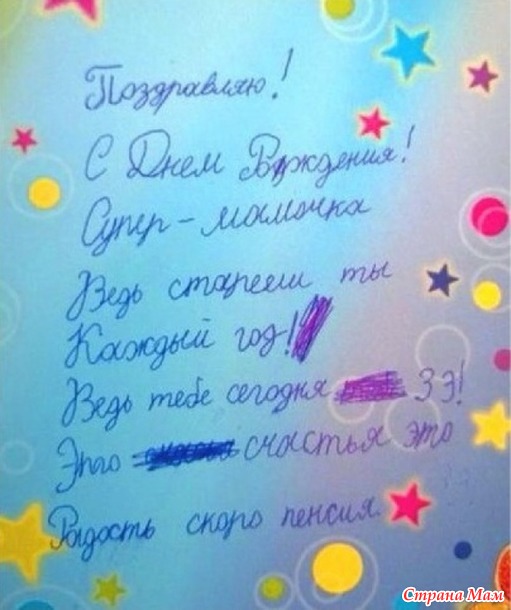 Поздравляю!
С Днем Рождения!
Супер-мамочка
Ведь старееш ты
Каждый год!
Ведь тебе сегодня 33!
Это счастья это
Радость скоро пенсия.
Страна Мам